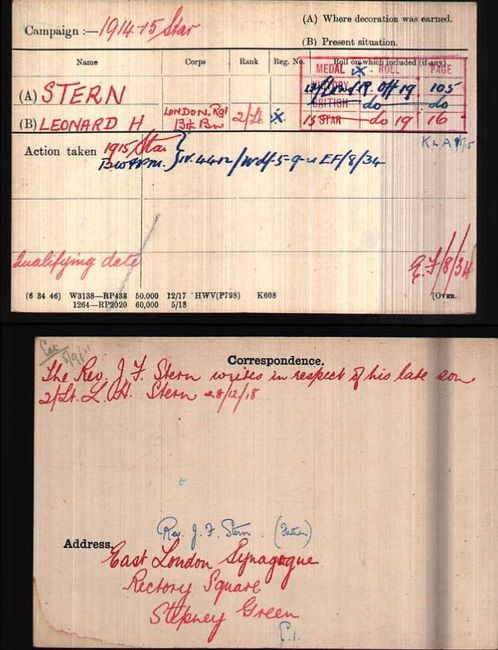 Campaign :— 1914-15 Star
(A) Where decoration was earned.
(B) Present situation.
Name Corps Rank Reg. No. Roll on which included (if any)
MEDAL ROLL PAGE
(A) STERN
VICTORY Off 19 105
BRITISH do do
(B) LEONARD H London. Rgt 2/Lt. 15 STAR do 19 16
13th Bn
Action taken 1915 Star
K in A
EF/8/34
Qualifying date
E.F/8/34
(6 34 46) W3138—RP438 50,000 12/17 HWV(P798) K608
1264—RP2020 60,000 5/18
[OVER.
Correspondence.
The Rev. J. F. Stern writes in respect of his late son
2/Lt. L. H. Stern 28/12/18
Rev. J. F. Stern (Father)
Address.
East London Synagogue
Rectory Square
Stepney Green
E.1.